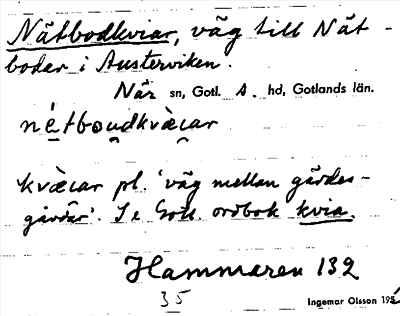 Nätbodkviar, väg till Nät-
bodar i Austerviken.
När sn, Gotl. A. hd, Gotlands län.
nétboudkvæ̀iar
kvæ̀iar pl. 'väg mellan gärdes-
gårdar'. Se Gotl. ordbok kvia.
Hammaren 132
35
Ingemar Olsson